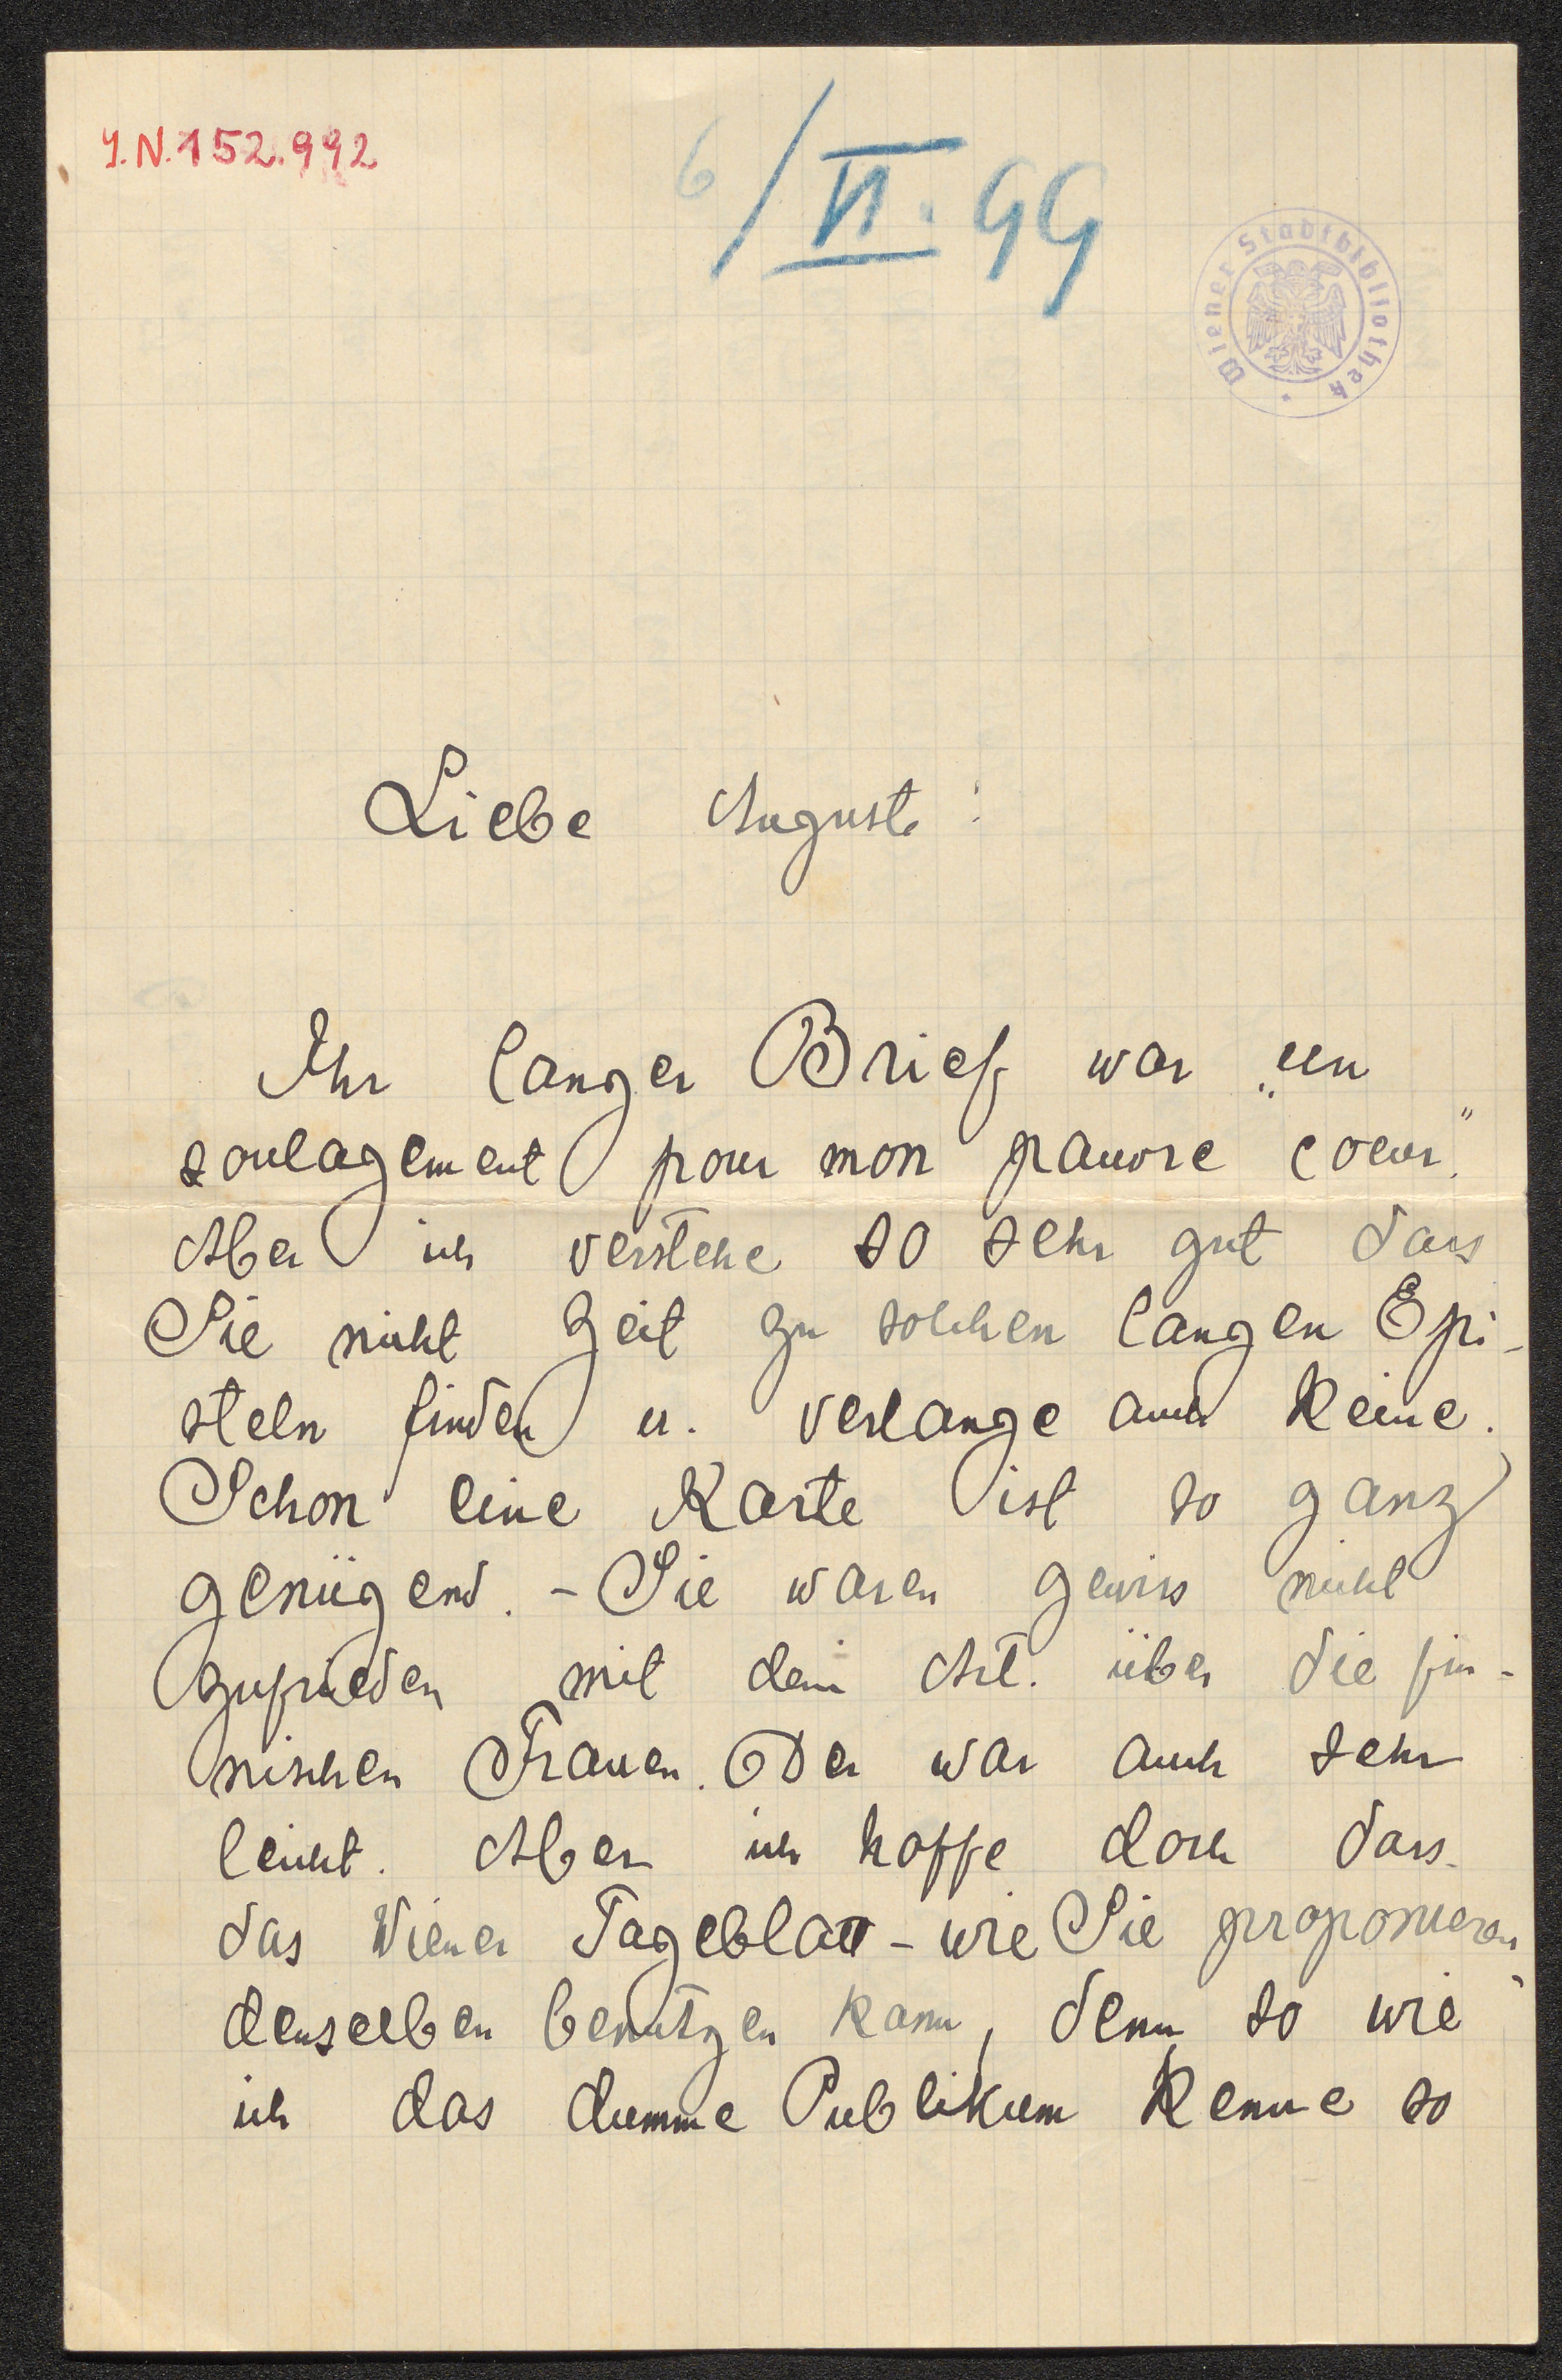 I.N. 152.992
6/VI. 99
Wiener Stadtbibliothek
Liebe Auguste!
Ihr langer Brief war „un
soulagement pour mon pauvre coeur".
Aber ich verstehe so sehr gut dass
Sie nicht Zeit zu solchen langen Epi-
steln finden u. verlange auch keine.
Schon eine Karte ist so ganz
genügend. - Sie waren gewiss nicht
zufrieden mit dem Art. über die fin-
nischen Frauen. Der war auch sehr
leicht. Aber ich hoffe doch dass
das Wiener Tageblatt - wie Sie proponieren -
denselben benutzen kann, denn so wie
ich das dumme Publikum kenne so